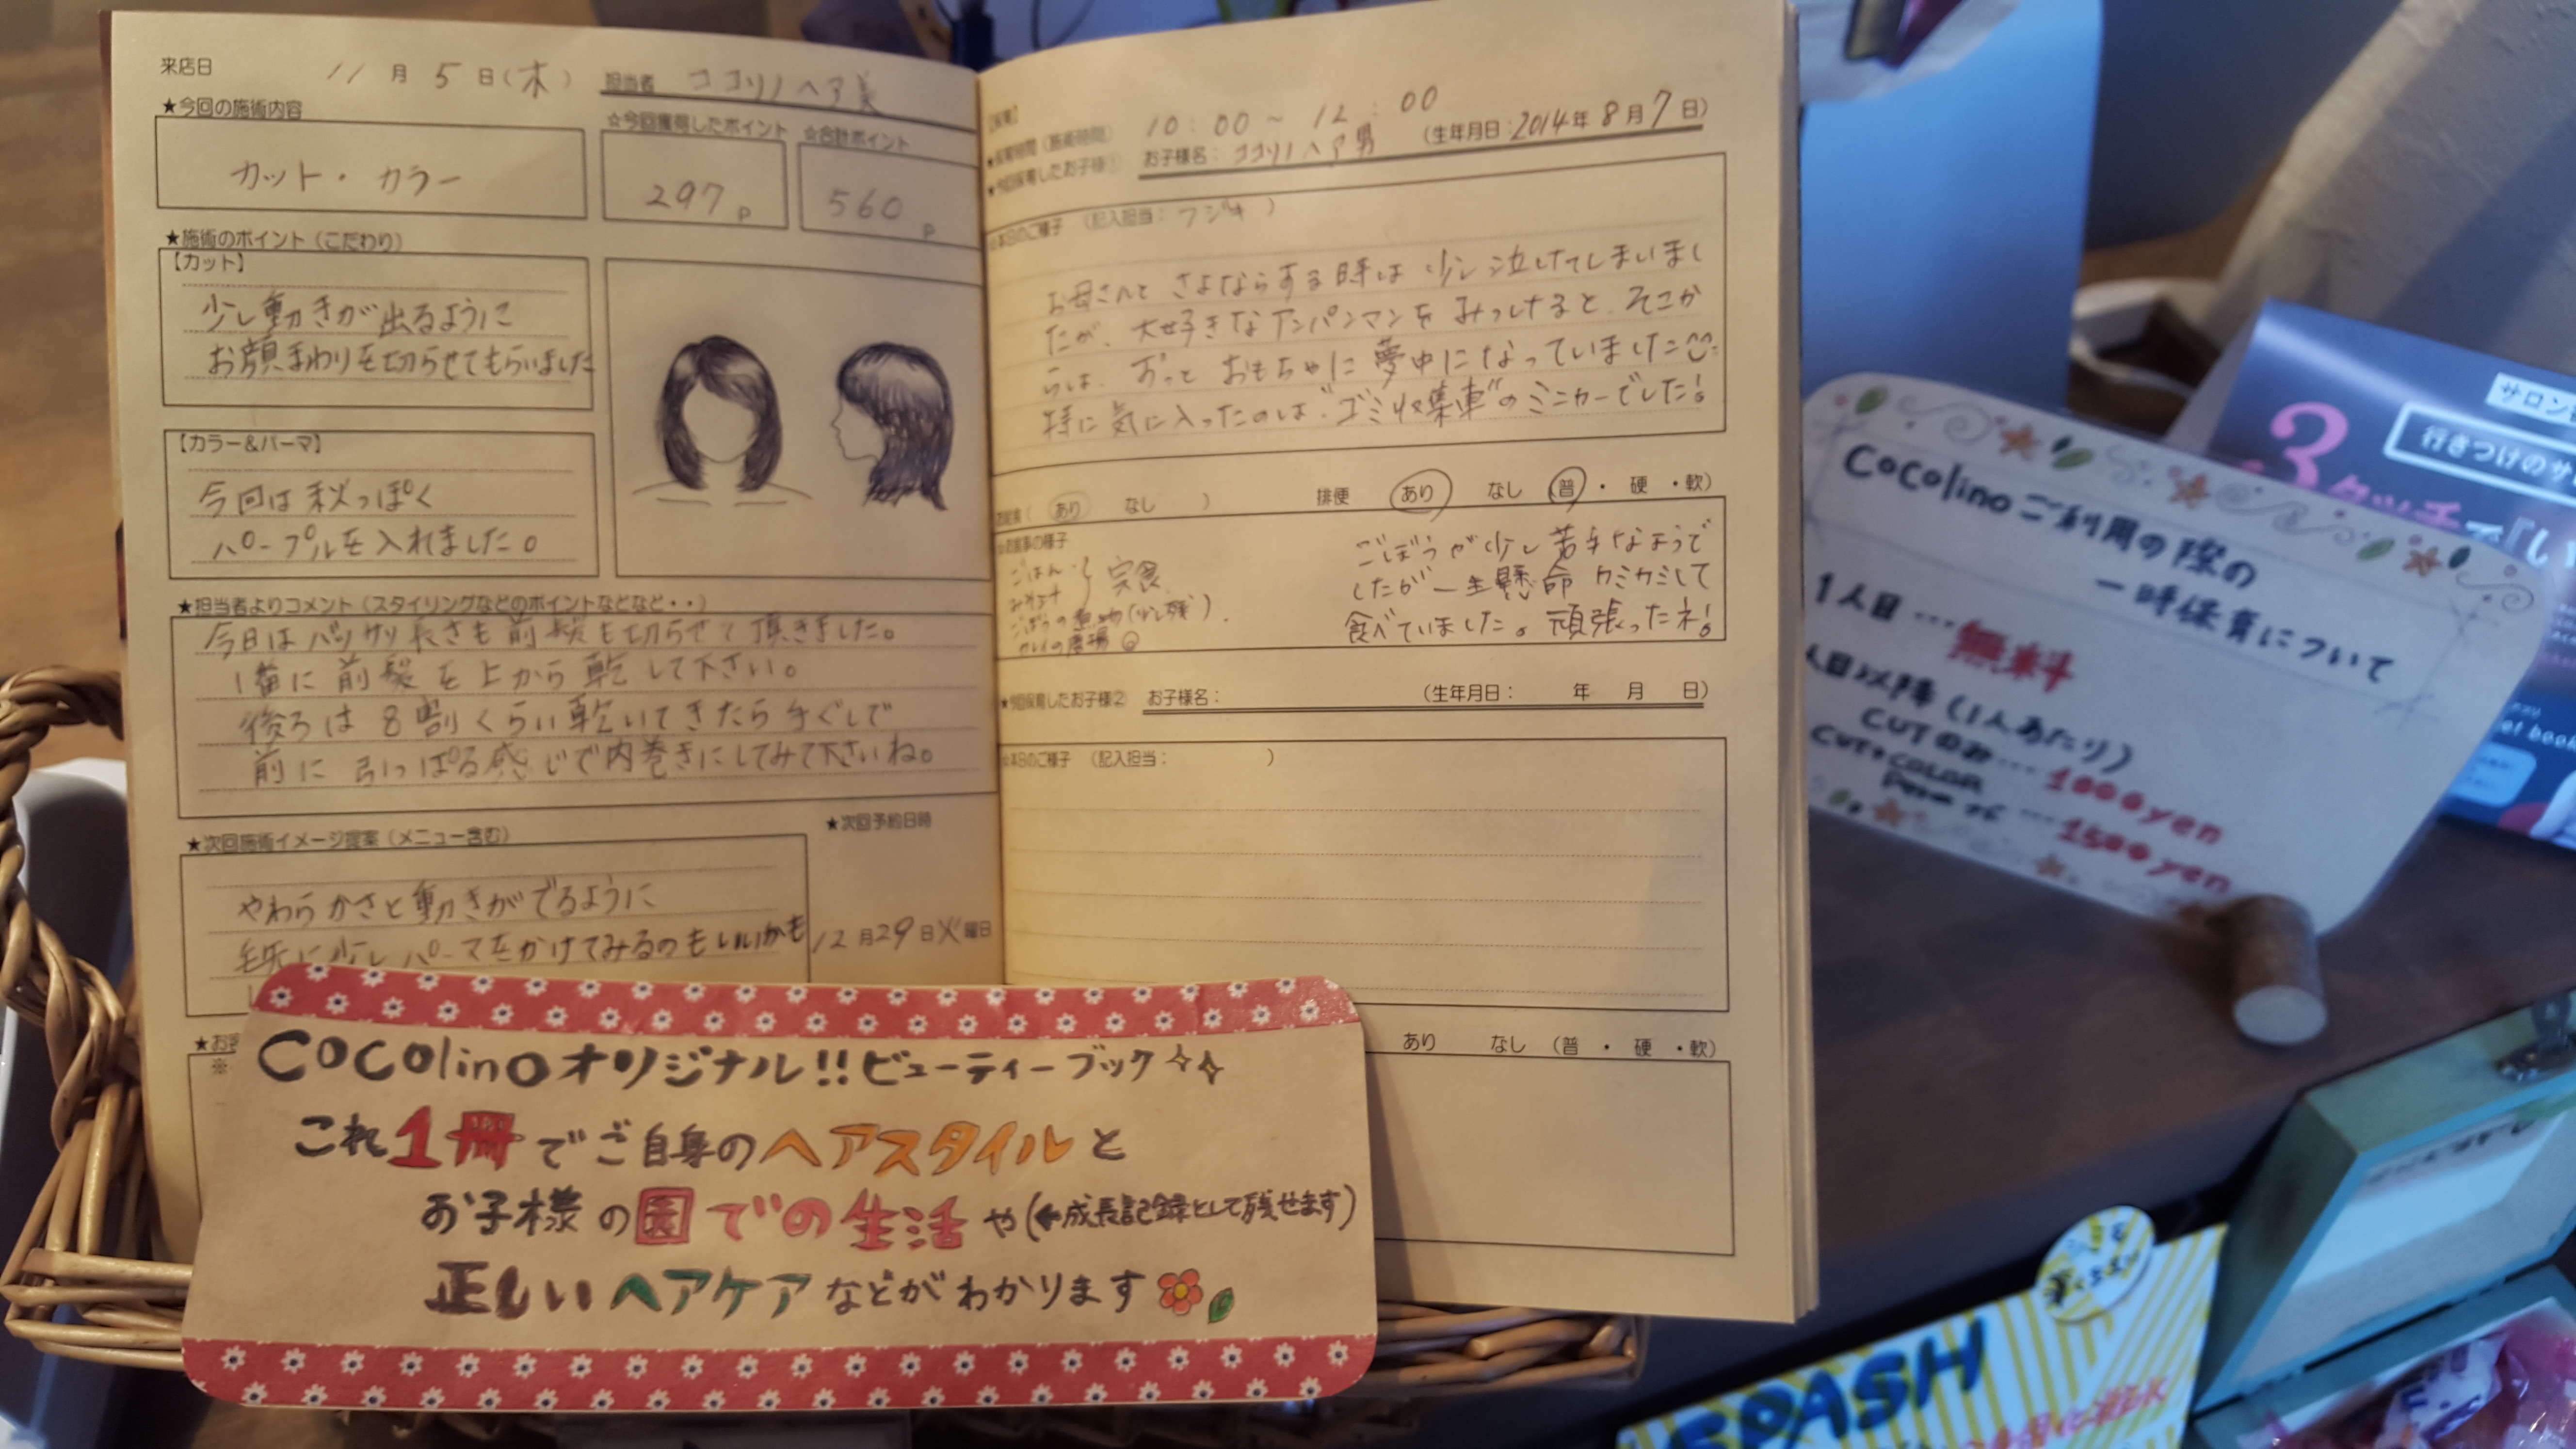 来店日 11月5日(木) 担当者 ココリノヘア美
★今回の施術内容
カット・カラー
☆今回獲得したポイント
297P
☆合計ポイント
560P
★施術のポイント(こだわり)
【カット】
少し動きが出るように
お顔まわりを切らせてもらいました
【カラー&パーマ】
今回は秋っぽく
パープルを入れました。
★担当者よりコメント(スタイリングなどのポイントなどなど・・)
今日はバッサリ長さも前髪も切らせて頂きました。
1番に前髪を上から乾して下さい。
後ろは8割くらい乾いてきたら手ぐしで
前に引っぱる感じで内巻きにしてみて下さいね。
★次回施術イメージ提案(メニュー含む)
やわらかさと動きがでるように
毛先に少しパーマをかけてみるのもいいかも
★次回予約日時
12月29日火曜日
★お
※
10:00~12:00
★今回保育したお子様① お子様名:ココリノヘア男 (生年月日:2014年8月7日)
☆本日のご様子 (記入担当:フジキ)
お母さんとさよならする時は少し泣けてしまいまし
たが、大好きなアンパンマンをみつけると、そこか
らは、ずっとおもちゃに夢中になっていました
特に気に入ったのは“ゴミ収集車”のミニカーでした!
あり なし ) 排便 あり なし (普・硬・軟)
お食事の様子
ごはん
みそ汁 } 完食
ごぼうの煮物(少し残)
ごぼうが少し苦手なようで
したが一生懸命カミカミして
食べていました。頑張ったネ!
★今回保育したお子様② お子様名: (生年月日: 年 月 日)
☆本日のご様子 (記入担当: )
あり なし (普・硬・軟)
cocolinoオリジナル!!ビューティーブック
これ1冊でご自身のヘアスタイルと
お子様の園での生活や(←成長記録として残せます)
正しいヘアケアなどがわかります
cocolinoご利用の際の
一時保育について
1人目…無料
人目以降(1人あたり)
CUTのみ…1000yen
CUT+COLOR
Perm etc…1500yen
サロン
行きつけのサ
3タッチで『し